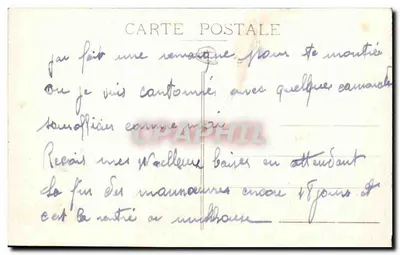 CARTE POSTALE
j'ai fait une remarque pour te montré
ou je suis cantonné avec quelques camarade
sous officier comme moi
CPAPHIL
Reçois mes Meilleure baiser en attendant
la fin des manoeuvres encore 18 jours et
c'est la rentré a mulhouse